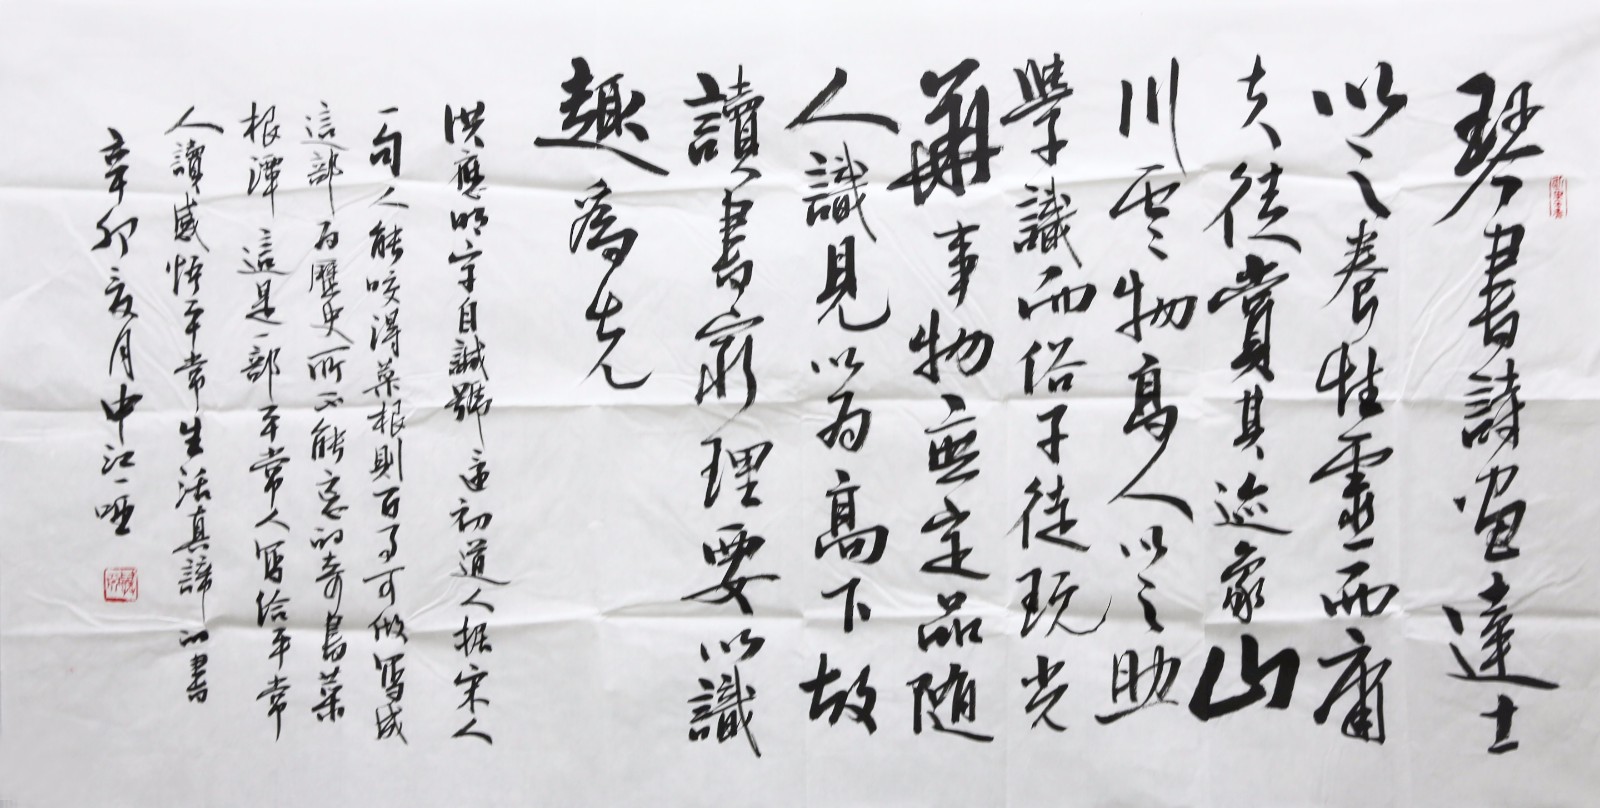 琴書詩畫達士
以之養性靈而庸
夫徒賞其迹象山
川雲物高人以之助
學識而俗子徒玩光
華事物無定品随
人識見以为高下故
讀書窮理要以識
趣為先
洪應明字自誠號還初道人据宋人
一句人能咬得菜根則百事可做寫成
這部为歷史所不能忘的奇書菜
根潭這是一部平常人寫给平常
人讀感悟平常生活真諦的書
辛卯夏月中江一